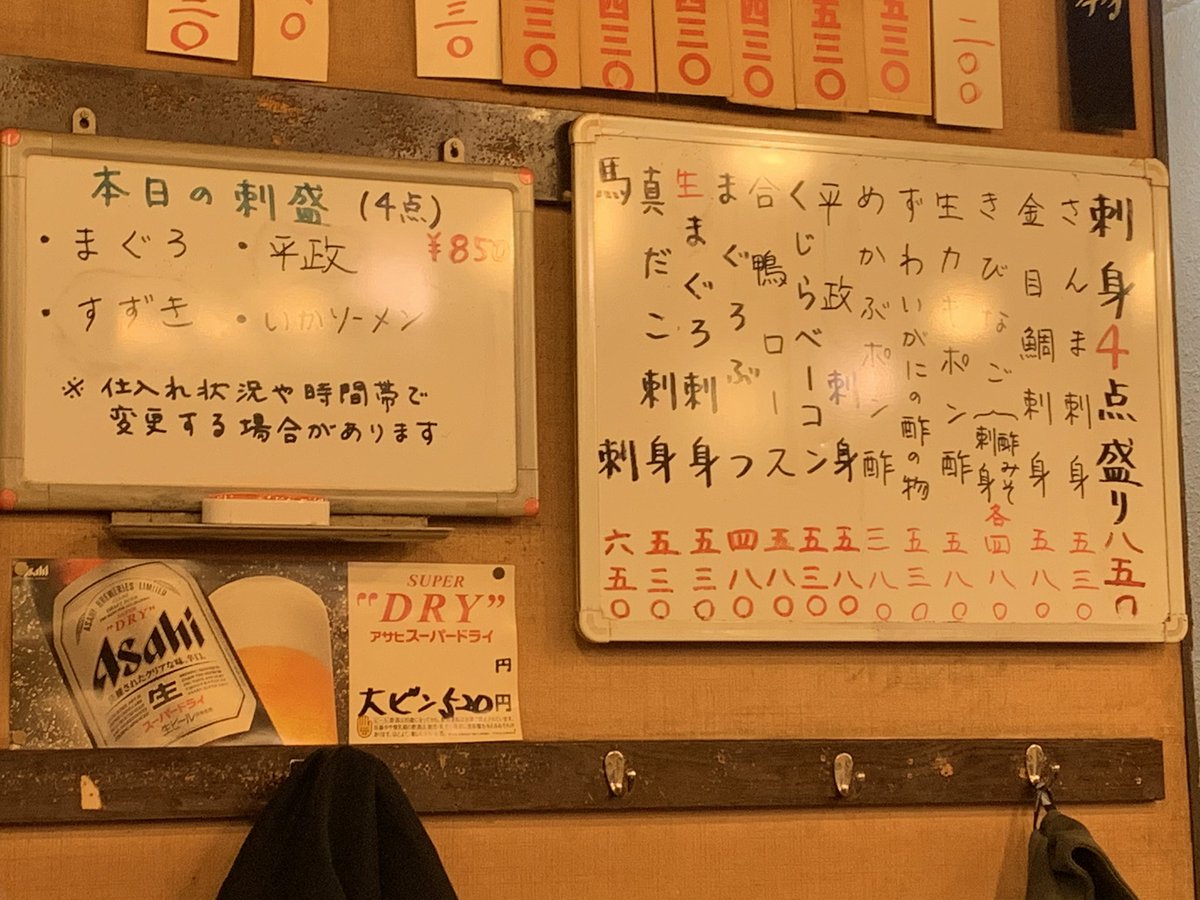 三〇
三〇
四三〇
四三〇
四三〇
四三〇
五三〇
五三〇
二〇〇
本日の刺盛(4点)
・まぐろ ・平政 ¥850
・すずき ・いかソーメン
※仕入れ状況や時間帯で
変更する場合があります
刺身4点盛り 八五〇
さんま刺身 五三〇
金目鯛刺身 五八〇
きびなご(刺身 酢みそ 各四八〇
生カキポン酢 五八〇
ずわいがにの酢の物 五三〇
めかぶポン酢 三八〇
平政刺身 五八〇
くじらベーコン 五三〇
合鴨ロース 五八〇
まぐろぶつ 四八〇
生まぐろ刺身 五三〇
真だこ刺身 五三〇
馬刺 六五〇
Asahi
ASAHI BREWERIES LIMITED
"DRY"
Asahi
洗練されたクリアな味、辛口。
生
スーパードライ
生ビール
SUPER
"DRY"
アサヒスーパードライ
円
大ビン520円